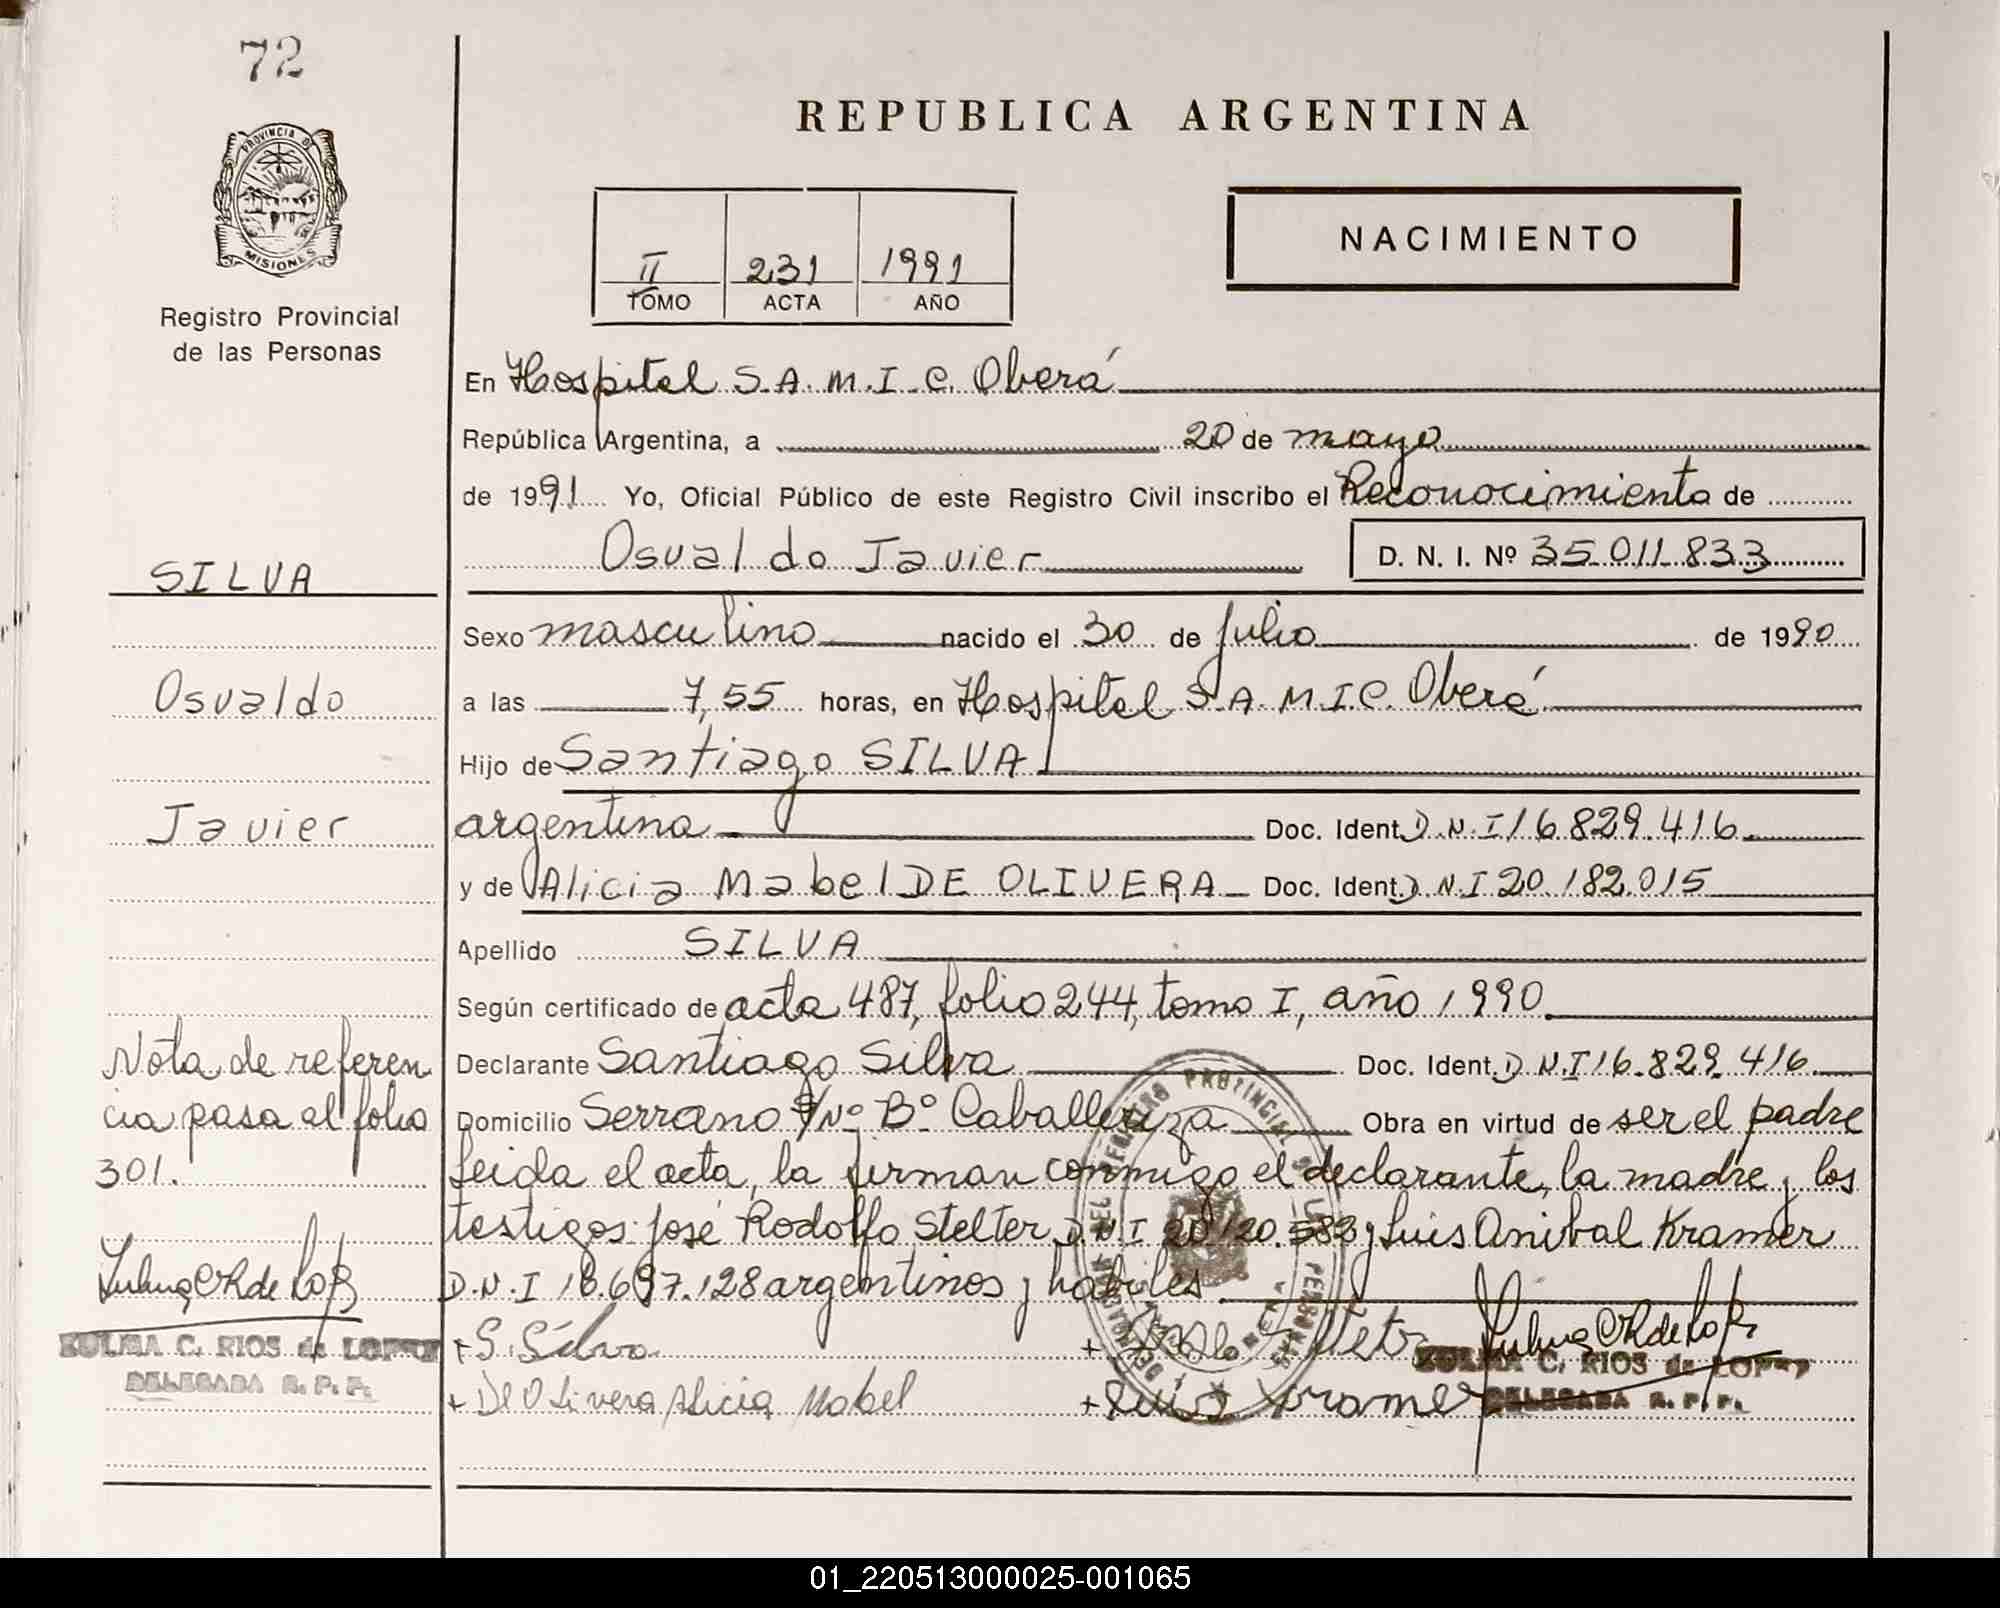 72
REPUBLICA ARGENTINA
PROVINCIA DE
MISIONES
Registro Provincial
de las Personas
II 231 1991
TOMO ACTA AÑO
NACIMIENTO
En Hospital S.A.M.I.C. Oberá
República Argentina, a 20 de mayo
de 1991 Yo, Oficial Público de este Registro Civil inscribo el Reconocimiento de
Osvaldo Javier D. N. I. Nº 35.011.833
SILVA
Sexo masculino nacido el 30 de julio de 1990
Osvaldo
a las 7,55 horas, en Hospital S.A.M.I.C. Oberá
Hijo de Santiago SILVA
Javier
argentina Doc. Ident. D.N.I 16.829.416
y de Alicia Mabel DE OLIVERA Doc. Ident. D.N.I 20.182.015
Apellido SILVA
Según certificado de acta 487, folio 244, tomo I, año 1990
Nota de referen
cia pasa al folio
301.
Declarante Santiago Silva Doc. Ident. D.N.I 16.829.416
Domicilio Serrano S/Nº Bº Caballeriza Obra en virtud de ser el padre
leida el acta, la firman conmigo el declarante, la madre y los
testigos: José Rodolfo Stelter D.N.I 20.120.583 y Luis Anibal Kramer
D.N.I 18.697.128 argentinos y habiles
ZULMA C. RIOS de LOPEZ
DELEGADA R. P. P.
+ S. Silva
+ De Olivera Alicia Mabel
+ Luis Kramer
ZULMA C. RIOS de LOPEZ
DELEGADA R. P. P.
01_220513000025-001065